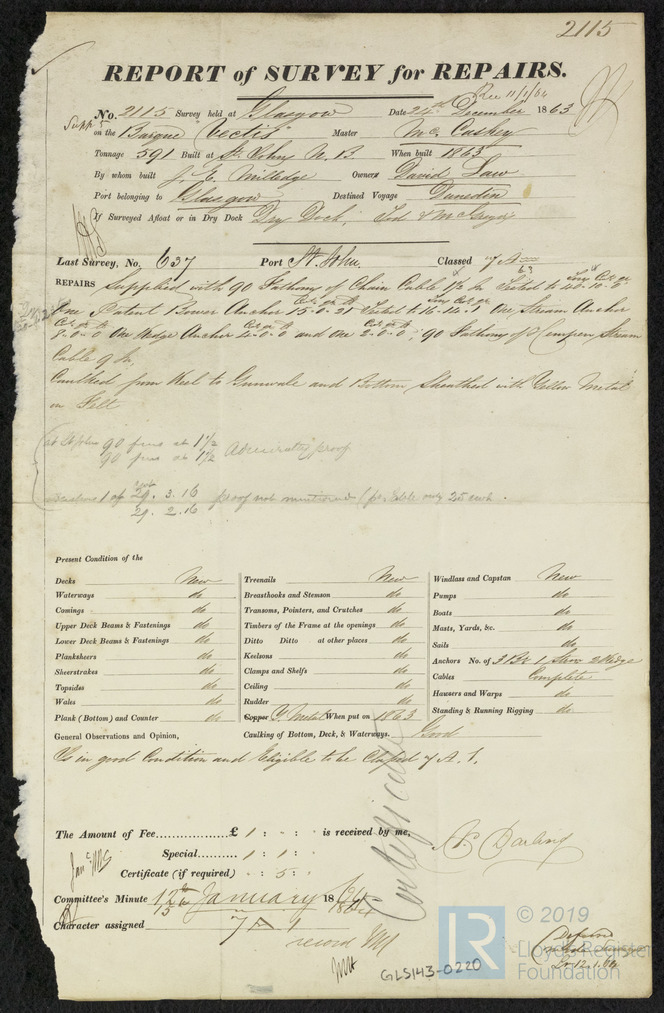 2115
REPORT of SURVEY for REPAIRS.
Rec 11/1/64
No. 2115 Survey held at Glasgow Date 24th December 1863
Supp 5
on the Barque "Vectis" Master Mc. Caskey
Tonnage 591 Built at St. John N. B. When built 1863
By whom built J. E. Milledge Owners David Law
Port belonging to Glasgow Destined Voyage Dunedin
If Surveyed Afloat or in Dry Dock Dry Dock,
Last Survey, No. 637 Port St. John. Classed 7 A
63
REPAIRS Supplied with 90 Fathoms of Chain Cable 1 1/2 In Tested to 40-10-0
One Patent Bower Anchor 15-0-21 Tested to 16-14-1 One Stream Anchor
8-0-0 One Kedge Anchor 4-0-0 and one 2-0-0; 90 Fathoms of Hempen Stream
Cable 9 In.
Caulked from Keel to Gunwale and Bottom Sheathed with Yellow Metal
on Felt
at St John 90 fms at 1 1/2 Admiralty proof
90 fms at 1 1/2
29. 3. 16 proof not mentioned
29. 2. 16
Present Condition of the
Decks New Treenails New Windlass and Capstan New
Waterways do Breasthooks and Stemson do Pumps do
Comings do Transoms, Pointers, and Crutches do Boats do
Upper Deck Beams & Fastenings do Timbers of the Frame at the openings do Masts, Yards, &c. do
Lower Deck Beams & Fastenings do Ditto Ditto at other places do Sails do
Planksheers do Keelsons do Anchors No. of 3 Br 1 Strm 2 Kedge
Sheerstrakes do Clamps and Shelfs do Cables Complete
Topsides do Ceiling do Hawsers and Warps do
Wales do Rudder do Standing & Running Rigging do
Plank (Bottom) and Counter do Copper Y Metal When put on 1863
General Observations and Opinion, Caulking of Bottom, Deck, & Waterways. Good
Is in good Condition and Eligible to be Classed 7 A. 1.
Certificate
The Amount of Fee................ £ 1 : - : is received by me,
Special.......... 1 : 1 :
A. Darling
Certificate (if required) - : 5 :
Committee's Minute 12th January 1864
15 1864
Character assigned 7 A 1
record
GLS143-0220
© 2019
LR
Lloyd's Register
Foundation